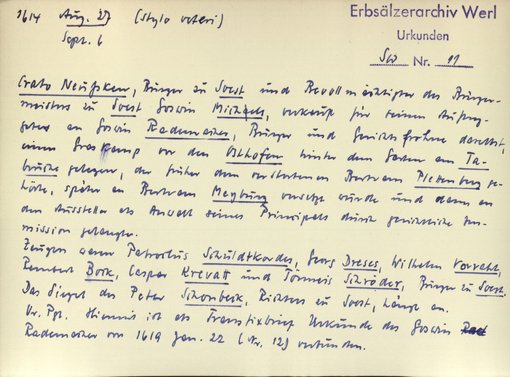 1614 Aug. 27 (stylo veteri)
Sept. 6
Erbsälzerarchiv Werl
Urkunden
Sw Nr. 11
Crato Neußken, Bürger zu Soest und Bevollmächtigter des Bürger-
meisters zu Soest Goswin Michaels, verkauft für seinen Auftrag-
geber an Goswin Rademacher, Bürger und Gerichtsfrohne daselbst,
einen Graskamp vor dem Osthofen hinter dem Garten am Ta-
bruche gelegen, der früher dem verstorbenen Bertram Plettenberg ge-
hörte, später an Bertram Meyburg versetzt wurde und dann an
den Aussteller als Anwalt seines Principals durch gerichtliche Im-
mission gelangte.
Zeugen waren Patroclus Schuldtkordes, Georg Dreses, Wilhelm Vorreht,
Rembert Bock, Caspar Krevatt und Tönnies Schröder, Bürger zu Soest.
Das Siegel des Peter Schonbeck, Richters zu Soest, hängt an.
Or. Pgt. Hiermit ist als Transfixbrief Urkunde des Goswin
Rademacher von 1619 Jan. 22 (Nr. 12) verbunden.